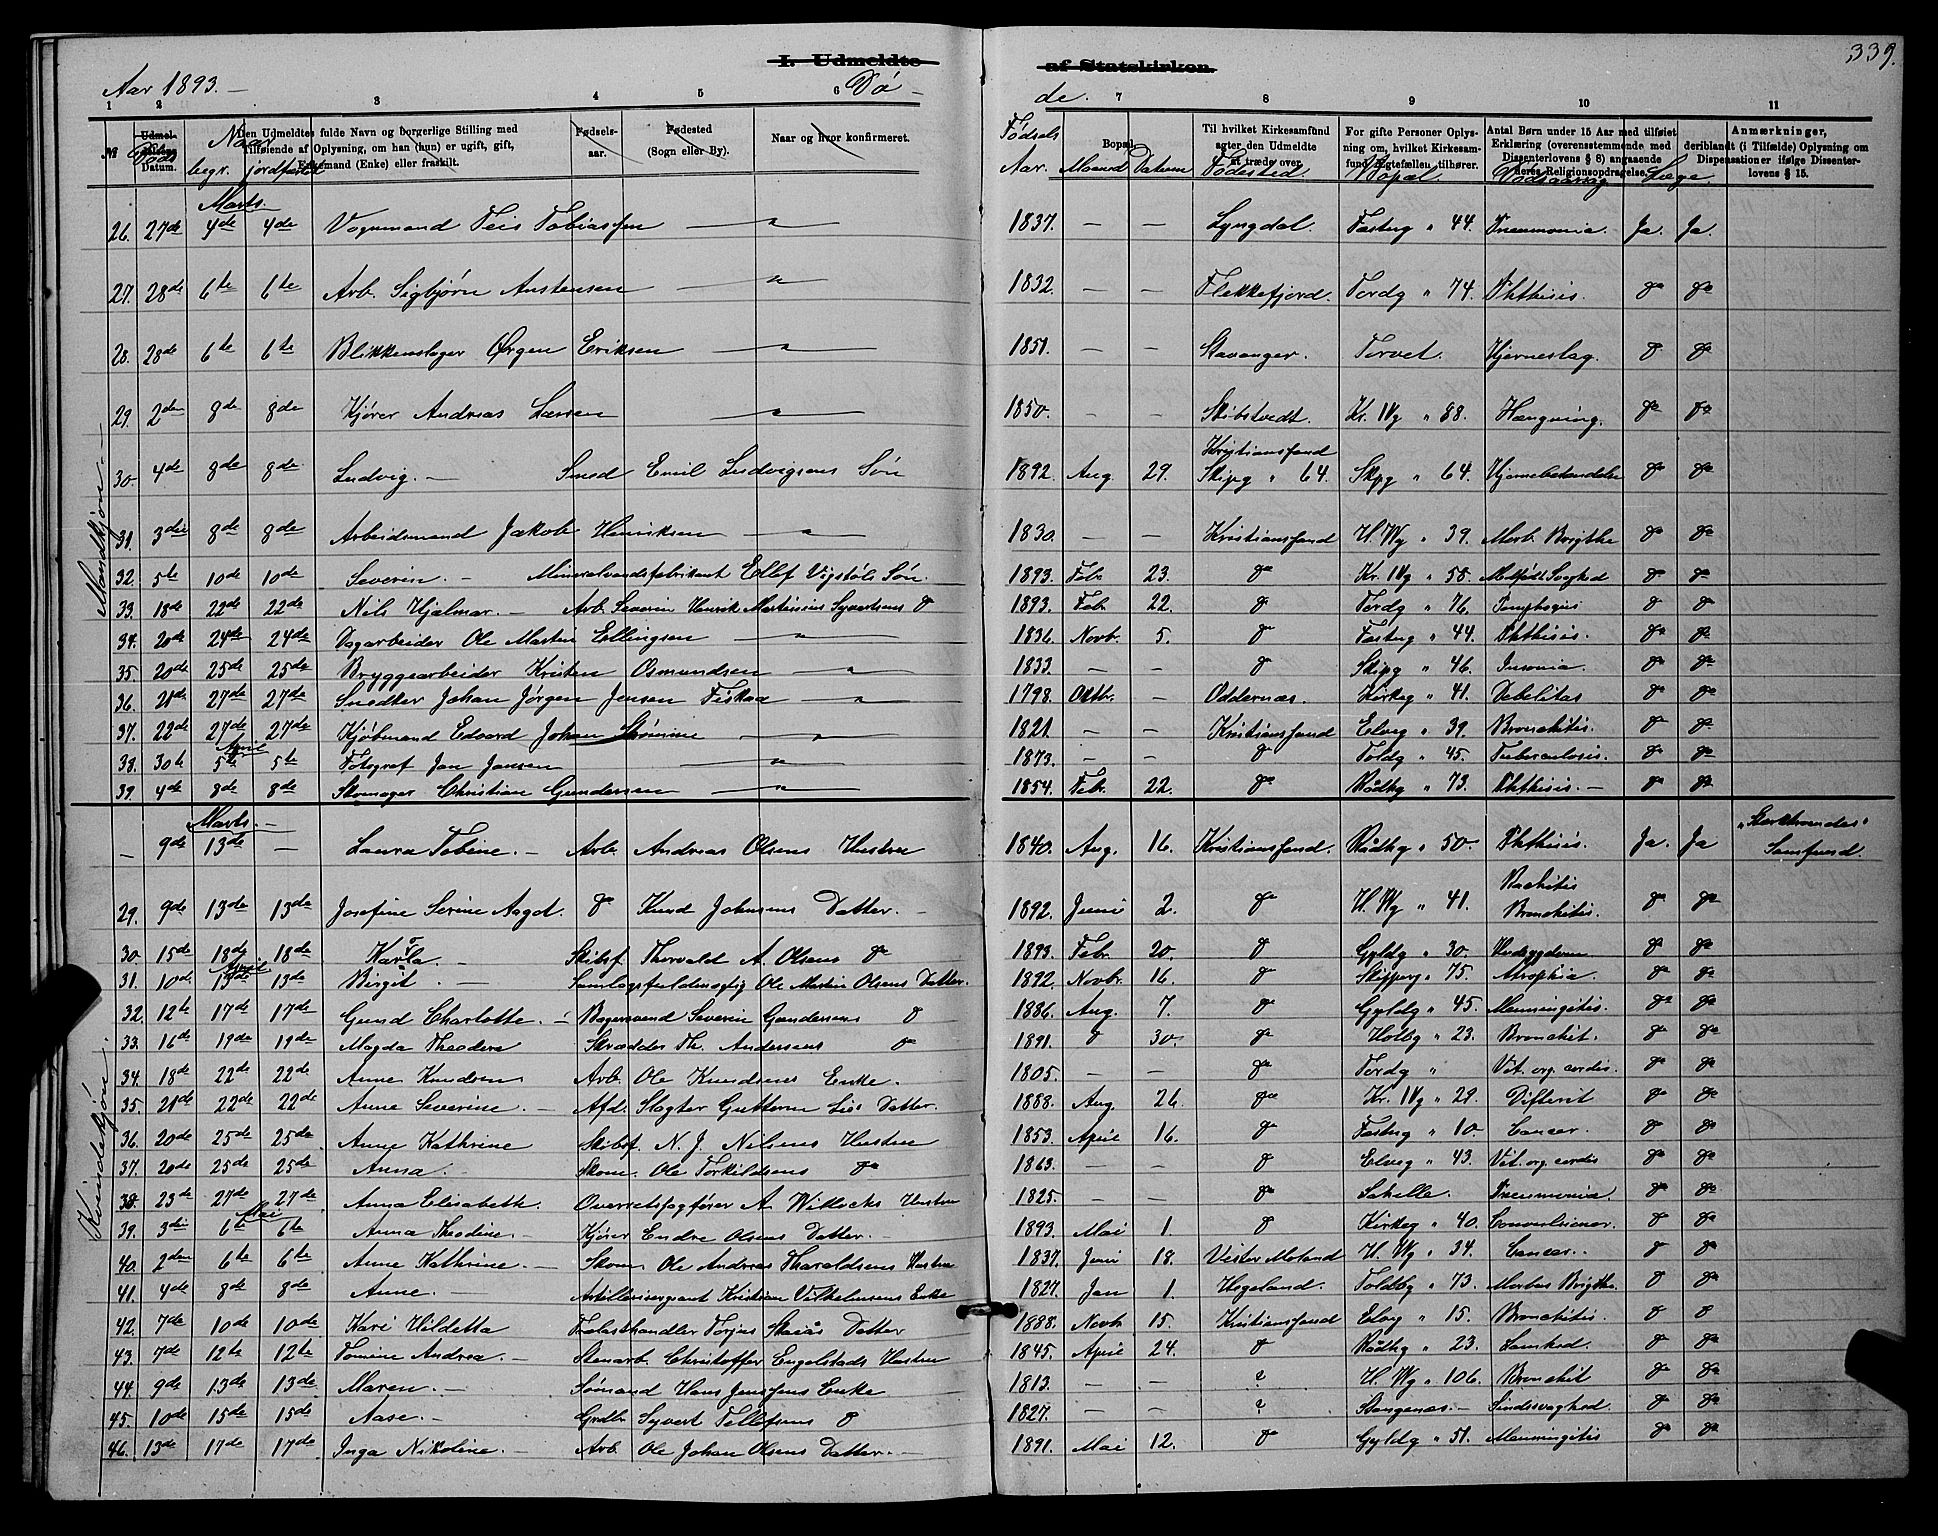 339.
I. Udmeldte af Statskirken.
Aar 1893. Dø- de.
1 2 3 4 5 6 7 8 9 10 11
№ Udmel- Datum. Den Udmeldtes fulde Navn og borgerlige Stilling med Tilføiende af Oplysning, om han (hun) er ugift, gift, Enkemand (Enke) eller fraskilt. Fødsels- aar. Fødested (Sogn eller By). Naar og hvor konfirmeret. Bopæl. Til hvilket Kirkesamfund agter den Udmeldte at træde over. For gifte Personer Oplysning om, hvilket Kirkesamfund Ægtefællen tilhører. Antal Børn under 15 Aar med tilføiet Erklæring (overensstemmende med Dissenterlovens § 8) angaaende deres Religionsopdragelse, deriblandt (i Tilfælde) Oplysning om Dispensationer ifølge Dissenterlovens § 15. Anmærkninger,
Døds Naar begr. jordfæstet Fødsels Aar. Maaned Datum Fødested. Bopæl. Dødsaarsag Læge.
Mandkjøn.
Marts.
26. 27de 4de 4de Vognmand Teis Tobiassen — " — 1837. — — Lyngdal. Fæstng " 44. Pneumonia. Ja. Ja.
27. 28de 6te 6te Arb. Sigbjørn Austensen — " — 1832. — — Flekkefjord. Tordg " 74. Phthisis. do do
28. 28de 6te 6te Blikkenslager Ørgen Eriksen — " — 1851. — — Stavanger. Torvet. Hjerneslag. do do
29. 2den 8de 8de Kjører Andreas Larsen — " — 1850. — — Skibstvedt. Kr. IVg " 88. Hængning. do do
30. 4de 8de 8de Ludvig. — Smed Emil Ludvigsens Søn 1892. Aug. 29. Kristianssand Skipg " 64. Skpg " 64. Hjernebetændelse do do
31. 3die 8de 8de Arbeidsmand Jakob Henriksen — " — 1830. — — Kristianssand H. Wg " 39. Morb. Brigthe do do
32. 5te 10de 10de Severin. — Mineralvandsfabrikant Ellef Vigstøls Søn. 1893. Febr 23. do Kr. IVg " 58. Medfødt Svaghed do do
33. 18de 22de 22de Nils Hjalmar. — Arb. Severin Henrik Martinsens Syvertsens do 1893. Feb. 22. do Tordg " 76. do do
34. 20de 24de 24de Dagarbeider Ole Martin Ellingsen — " — 1836. Novb. 5. do Fæstng " 44. Phthisis. do do
35. 20de 25de 25de Bryggearbeider Kristen Osmundsen — " — 1833. — — do Skipg " 46. do do
36. 21de 27de 27de Snedker Johan Jørgen Jensen Fiskaa — " — 1798. Oktbr. — Oddernæs. Kirkeg " 41. Debelitas do do
37. 22de 27de 27de Kjøbmand Edvard Johan Strømme — " — 1821. — — Kristianssand Elveg " 39. Bronchitis. do do
April
38. 30te 5te 5te Fotograf Jan Jansen — " — 1873. — — do Toldg " 45. Tuberculosis. do do
39. 4de 8de 8de Skomager Christian Gundersen — " — 1854. Feb. 22. do Rådhg " 73. Phthisis. — do do
Kvindekjøn.
Marts. —
— 9de 13de — Laura Tobine. — Arb. Andreas Olsens Hustru 1840. Aug. 16. Kristianssand. Rådhg " 50. Phthisis. Ja. Ja "Sterkbrandes" Samfund.
29. 9de 13de 13de Josefine Serine Aagot. do Knud Johnsens Datter. — 1892. Juni 2. do H. Wg " 41. Rachitis Bronchitis. do do
30. 15de 18de 18de Karla. — Skibsf. Thorvald A. Olsens do 1893. Febr. 20. do Gyldg " 30. do do
April
31. 10de 13de 13de Birgit. — Samlagsfuldmægtig Ole Martin Olsens Datter. 1892. Novbr. 16. do Skipperg " 75. Atrophia. do do
32. 12te 17de 17de Gund Charlotte. — Bagersvend Severin Gundersens do 1886. Aug. 7. do Gyldg " 45. Menningitis. do do
33. 16de 19de 19de Magda Theodora Skrædder Th. Andersens do 1891. do 30. do Holbg " 23. Bronchit. do do
34. 18de 22de 22de Anne Knudsen Arb. Ole Knudsens Enke. 1805. — — do Tordg " Vit. org. cordis. do do
35. 21de 22de 22de Anne Severine. — Afd. Slagter Guttorm Lies Datter. 1888. Aug. 26. do Kr. IVg " 29. Difterit do do
36. 20de 25de 25de Anne Kathrine Skibsf. N. J. Nielsens Hustru 1853. April 16. do Fæstng " 10. Cancer. do do
37. 20de 25de 25de Anna. — Skom. Ole Torkildsens do 1863. — — do Elveg " 43. Vit. org. cordis do do
38. 23de 27de 27de Anna Elisabeth. Overretssagfører A Willochs Hustru 1825. — — do Pneumonia. do do
Mai
39. 3die 6te 6te Anna Theodine. — Kjører Endre Olsens Datter. — 1893. Mai 1. do Kirkeg " 40. Convulsioner. do do
40. 2den 6te 6te Anne Kathrine. — Skom. Ole Andreas Tharaldsens Hustru 1837. Juni 18. Vester Moland H. Wg " 34. Cancer. do do
41. 4de 8de 8de Anne. — Artillerisergeant Kristian Vilhelmsens Enke 1827. Jan 1. Hegeland. Toldbg " 73. Morbus Brigthe. do do
42. 7de 10de 10de Kari Hildetta Torjus Skaiås Datter 1888. Novb 15. Kristianssand Elveg " 15. Bronchitis. do do
43. 7de 12te 12te Tomine Andrea. — Stenarb. Christoffer Engelstads Hustru 1845. April 24. do Rådhg " 23. Lamhed. do do
44. 9de 13de 13de Maren. — Sømand Hans Jenssens Enke 1813. — — ? H. Wg " 106. Bronchit do do
45. 10de 15de 15de Aase. — Grdbr. Syvert Tellefsens do 1827. — — ? Stangenæs. — Sindssvaghed. do do
46. 13de 17de 17de Inga Nikoline. — Arb. Ole Johan Olsens Datter. — 1891. Mai 12. do Gyldg " 51. Menningitis do do